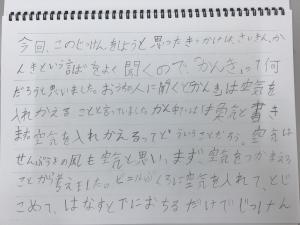 今回、このじっけんをしようと思ったきっかけは、さいきん、かん
きという言ばをよく聞くので「かんき」って何
だろうと思いました。おうちの人に聞くと「かんき」は空気を
入れかえることと言っていました。かん字では「換気」と書き
ます。空気を入れかえるってどういうことだろう。空気は
ぜんぶうちの風も空気と思い、まず、空気をつかまえる
ことから考えました。ビニールぶくろに空気を入れて、とじ
こめて、はなすと下におちるだけでじっけん